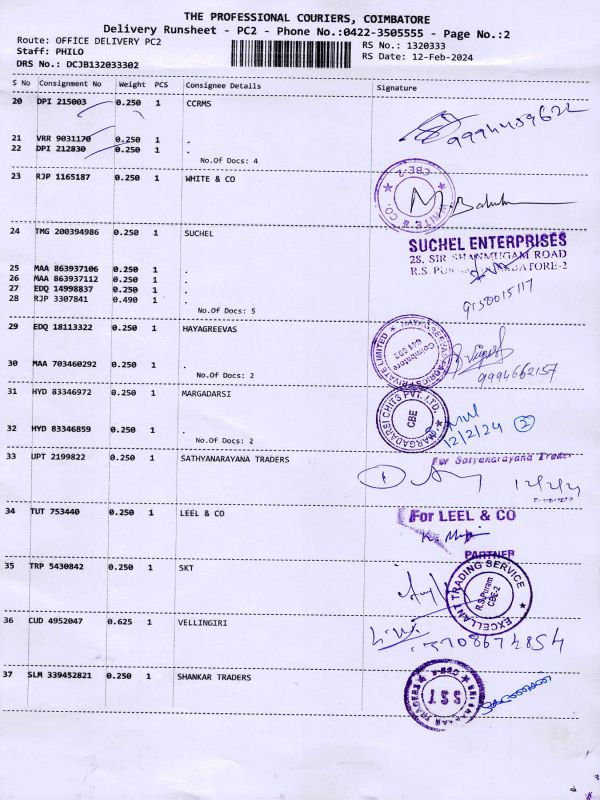 THE PROFESSIONAL COURIERS, COIMBATORE
Delivery Runsheet - PC2 - Phone No.:0422-3505555 - Page No.:2
Route: OFFICE DELIVERY PC2
Staff: PHILO
DRS No.: DCJB132033302
RS No.: 1320333
RS Date: 12-Feb-2024
S No Consignment No Weight PCS Consignee Details Signature
20 DPI 215003 0.250 1 CCRMS
9994459622
21 VRR 9031170 0.250 1 .
22 DPI 212830 0.250 1 .
No.Of Docs: 4
23 RJP 1165187 0.250 1 WHITE & CO
WHITE & CO. CBE-2
24 TMG 200394986 0.250 1 SUCHEL
SUCHEL ENTERPRISES
28, SIR SHANMUGAM ROAD
25 MAA 863937106 0.250 1 .
26 MAA 863937112 0.250 1 .
27 EDQ 14998837 0.250 1 .
28 RJP 3307841 0.490 1 .
No.Of Docs: 5
29 EDQ 18113322 0.250 1 HAYAGREEVAS
PRIVATE LIMITED
Coimbatore
30 MAA 703460292 0.250 1 .
No.Of Docs: 2
9994662157
31 HYD 83346972 0.250 1 MARGADARSI
MARGADARSI CHITS PVT. LTD.
CBE
12/2/24 2
32 HYD 83346859 0.250 1 .
No.Of Docs: 2
33 UPT 2199822 0.250 1 SATHYANARAYANA TRADERS
For Satyanarayana
34 TUT 753440 0.250 1 LEEL & CO
For LEEL & CO
PARTNER
35 TRP 5430842 0.250 1 SKT
EXCELLANT TRADING SERVICE
R.S.Puram
CBE-2
36 CUD 4952047 0.625 1 VELLINGIRI
37 SLM 339452821 0.250 1 SHANKAR TRADERS
SST